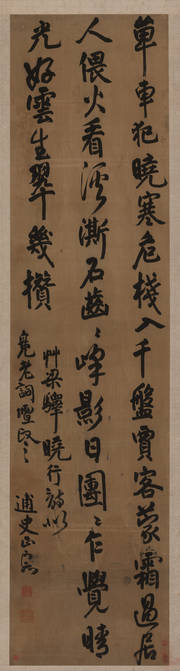 單車犯曉寒危棧入千盤賈客蒙霜過居
人偎火看溪澌石齒齒峰影日團團乍覺晴
光好雲生翠幾攢
草梁驛曉行詩似
老詞壇政之